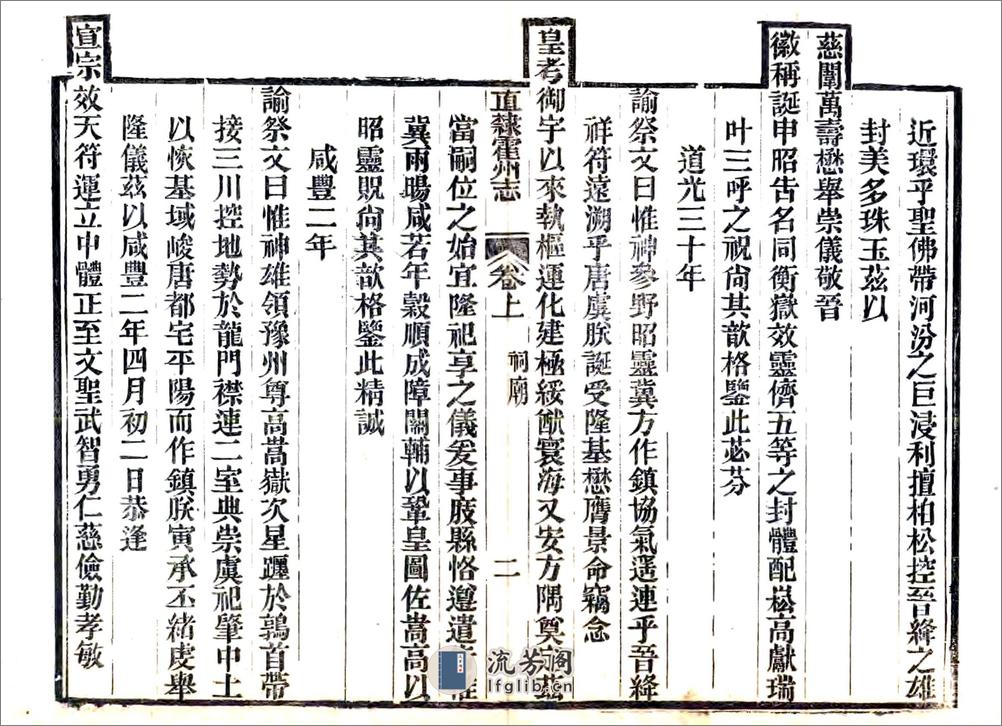 近環乎聖佛帶河汾之巨浸利擅柏松控晉絳之雄
封美多珠玉茲以
慈闈萬壽懋舉崇儀敬晉
徽稱誕申昭告名同衡嶽效靈儕五等之封體配崧高獻瑞
叶三呼之祝尙其歆格鑒此苾芬
道光三十年
諭祭文曰惟神參野昭靈冀方作鎮協氣遥連乎晉絳
祥符遠溯乎唐虞朕誕受隆基懋膺景命竊念
皇考御宇以來執樞運化建極綏猷寰海又安方隅奠茲
直隸霍州志
卷上 祠廟 二
當嗣位之始宜隆祀享之儀爰事庪縣恪遵遣惟
冀雨暘咸若年穀順成障關輔以鞏皇圖佐嵩高以
昭靈貺尙其歆格鑒此精誠
咸豐二年
諭祭文曰惟神雄領豫州尊高嵩嶽次星躔於鶉首帶
接三川控地勢於龍門襟連二室典崇虞祀肇中土
以恢基域峻唐都宅平陽而作鎮朕寅承丕緒虔舉
隆儀茲以咸豐二年四月初二日恭逢
宣宗效天符運立中體正至文聖武智勇仁慈儉勤孝敏
流芳閣
lfglib.cn